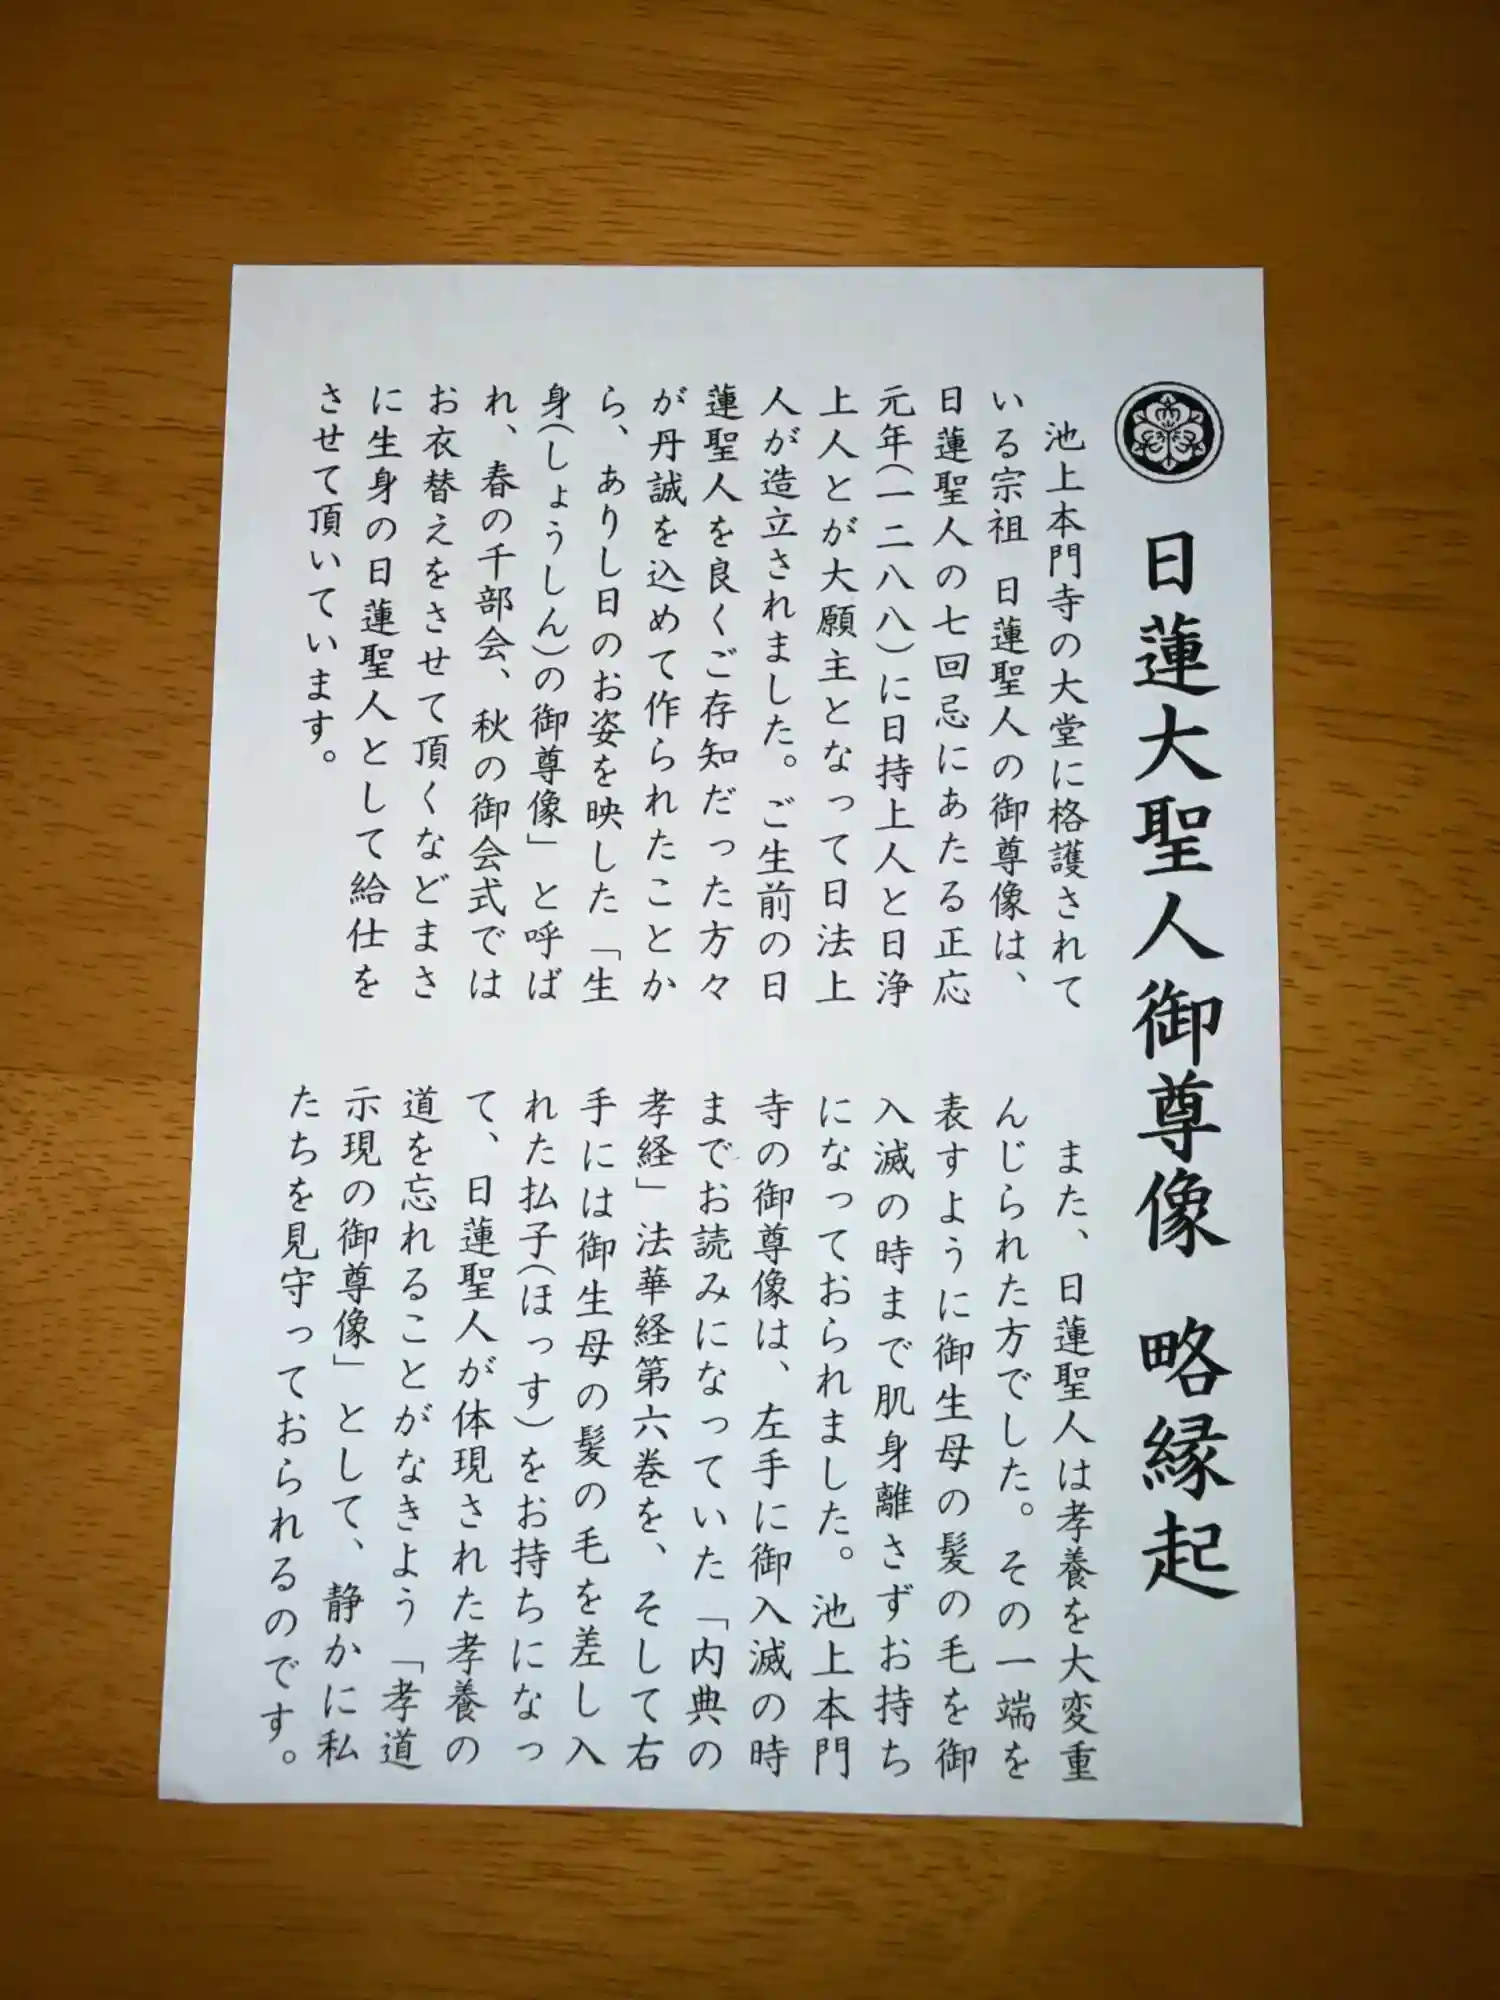 日蓮大聖人御尊像 略縁起
池上本門寺の大堂に格護されて
いる宗祖 日蓮聖人の御尊像は、
日蓮聖人の七回忌にあたる正応
元年(一二八八)に日持上人と日浄
上人とが大願主となって日法上
人が造立されました。ご生前の日
蓮聖人を良くご存知だった方々
が丹誠を込めて作られたことか
ら、ありし日のお姿を映した「生
身(しょうしん)の御尊像」と呼ば
れ、春の千部会、秋の御会式では
お衣替えをさせて頂くなどまさ
に生身の日蓮聖人として給仕を
させて頂いています。
また、日蓮聖人は孝養を大変重
んじられた方でした。その一端を
表すように御生母の髪の毛を御
入滅の時まで肌身離さずお持ち
になっておられました。池上本門
寺の御尊像は、左手に御入滅の時
までお読みになっていた「内典の
孝経」法華経第六巻を、そして右
手には御生母の髪の毛を差し入
れた払子(ほっす)をお持ちになっ
て、日蓮聖人が体現された孝養の
道を忘れることがなきよう「孝道
示現の御尊像」として、静かに私
たちを見守っておられるのです。